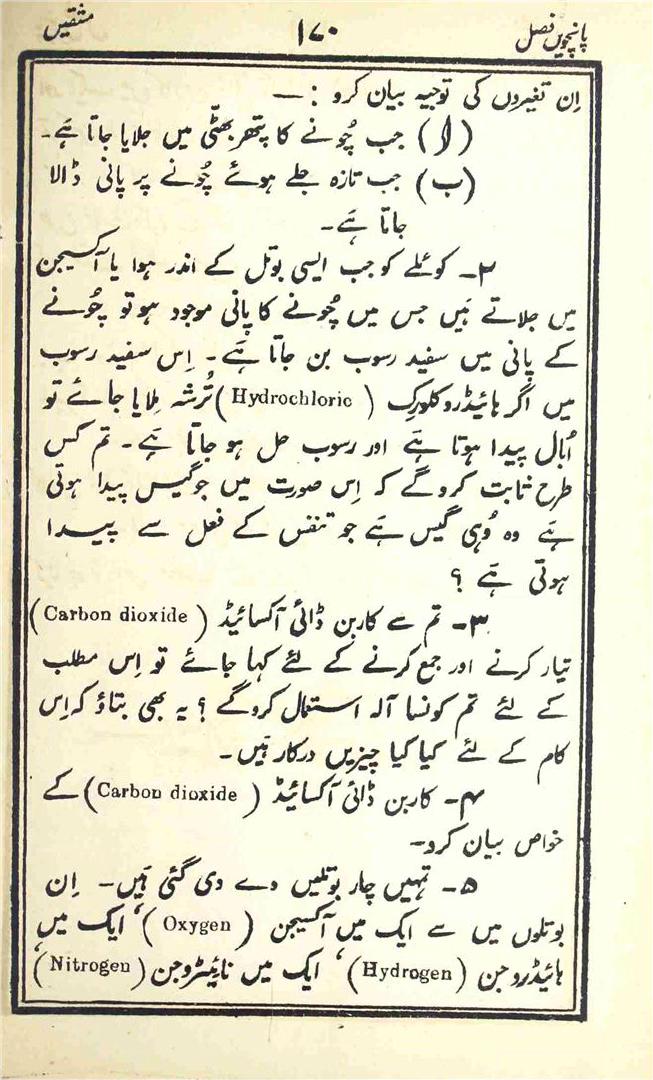 پانچویں فصل ۱۷۰ مشقیں
اِن تغیروں کی توجیہ بیان کرو :—
(ا) جب چُونے کا پتھر بھٹّی میں جلایا جاتا ہَے۔
(ب) جب تازہ جلے ہوئے چُونے پر پانی ڈالا
جاتا ہَے۔
۲۔ کوئلے کو جب ایسی بوتل کے اندر ہوا یا آکسیجن
میں جلاتے ہَیں جس میں چُونے کا پانی موجود ہو تو چُونے
کے پانی میں سفید رسوب بن جاتا ہَے۔ اِس سفید رسوب
میں اگر ہائیڈروکلورِک (Hydrochloric) تُرشہ مِلایا جائے تو
اُبال پیدا ہوتا ہَے اور رسوب حل ہو جاتا ہَے۔ تم کس
طرح ثابت کروگے کہ اِس صورت میں جو گیس پیدا ہوتی
ہَے وہ وُہی گیس ہَے جو تنفس کے فعل سے پیدا
ہوتی ہَے ؟
۳۔ تم سے کاربن ڈائی آکسائیڈ (Carbon dioxide)
تیار کرنے اور جمع کرنے کے لئے کہا جائے تو اِس مطلب
کے لئے تم کونسا آلہ استعمال کروگے ؟ یہ بھی بتاؤ کہ اِس
کام کے لئے کیا کیا چیزیں درکار ہَیں۔
۴۔ کاربن ڈائی آکسائیڈ (Carbon dioxide) کے
خواص بیان کرو۔
۵۔ تمہیں چار بوتلیں دے دی گئی ہَیں۔ اِن
بوتلوں میں سے ایک میں آکسیجن (Oxygen)، ایک میں
ہائیڈروجن (Hydrogen)، ایک میں نائیٹروجن (Nitrogen)،